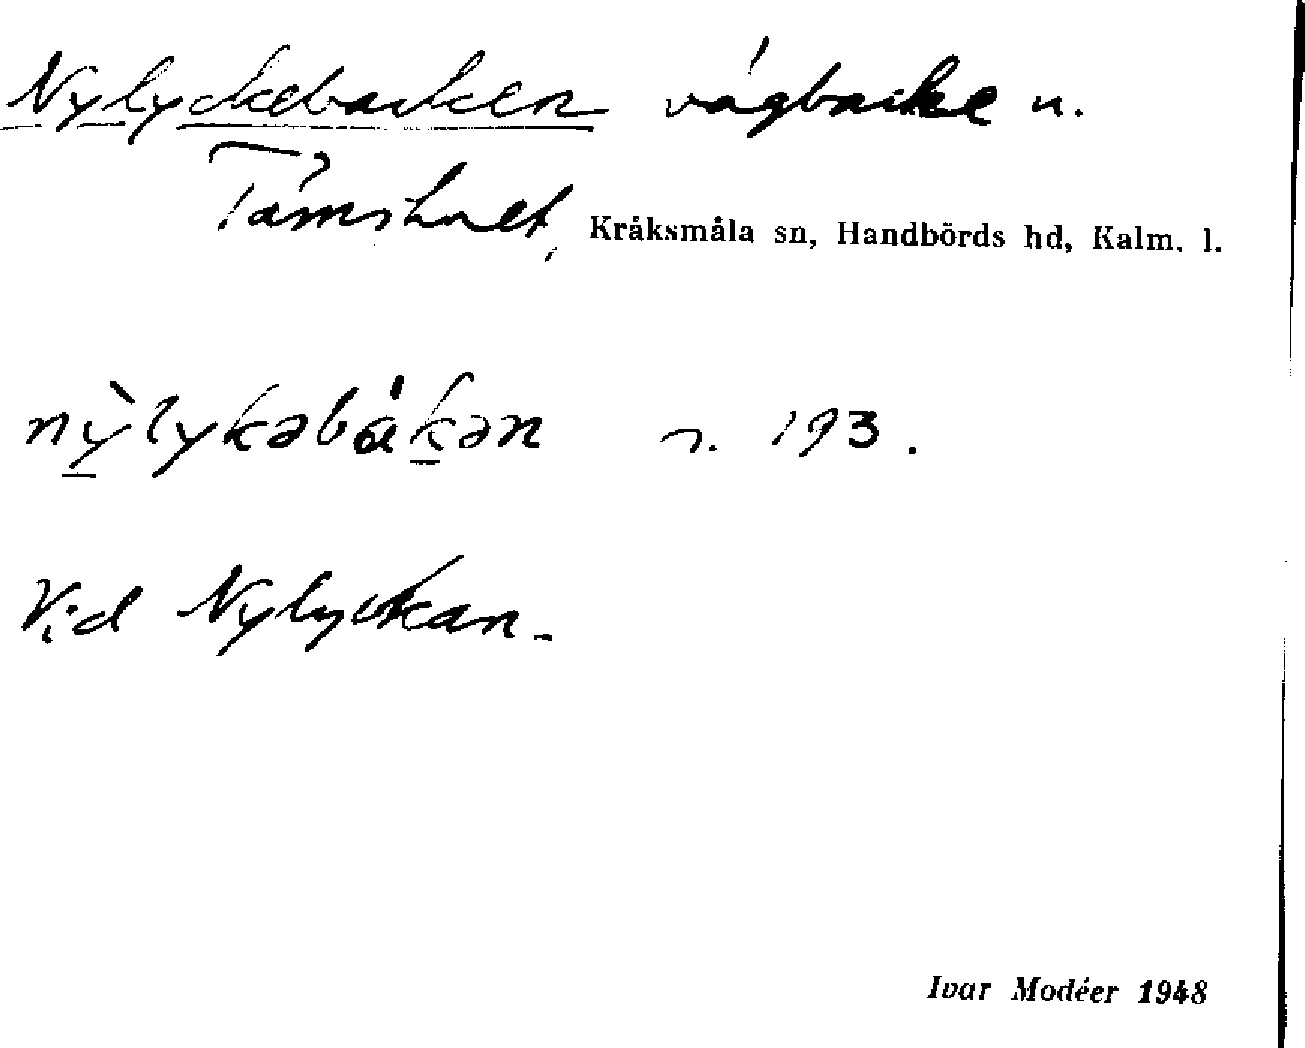 Nylyckebacken vägbacke n.
Tämshult, Kråksmåla sn, Handbörds hd, Kalm. l.
nỳ̠lykəbák̠ən n. 193.
Vid Nylyckan.
Ivar Modéer 1948